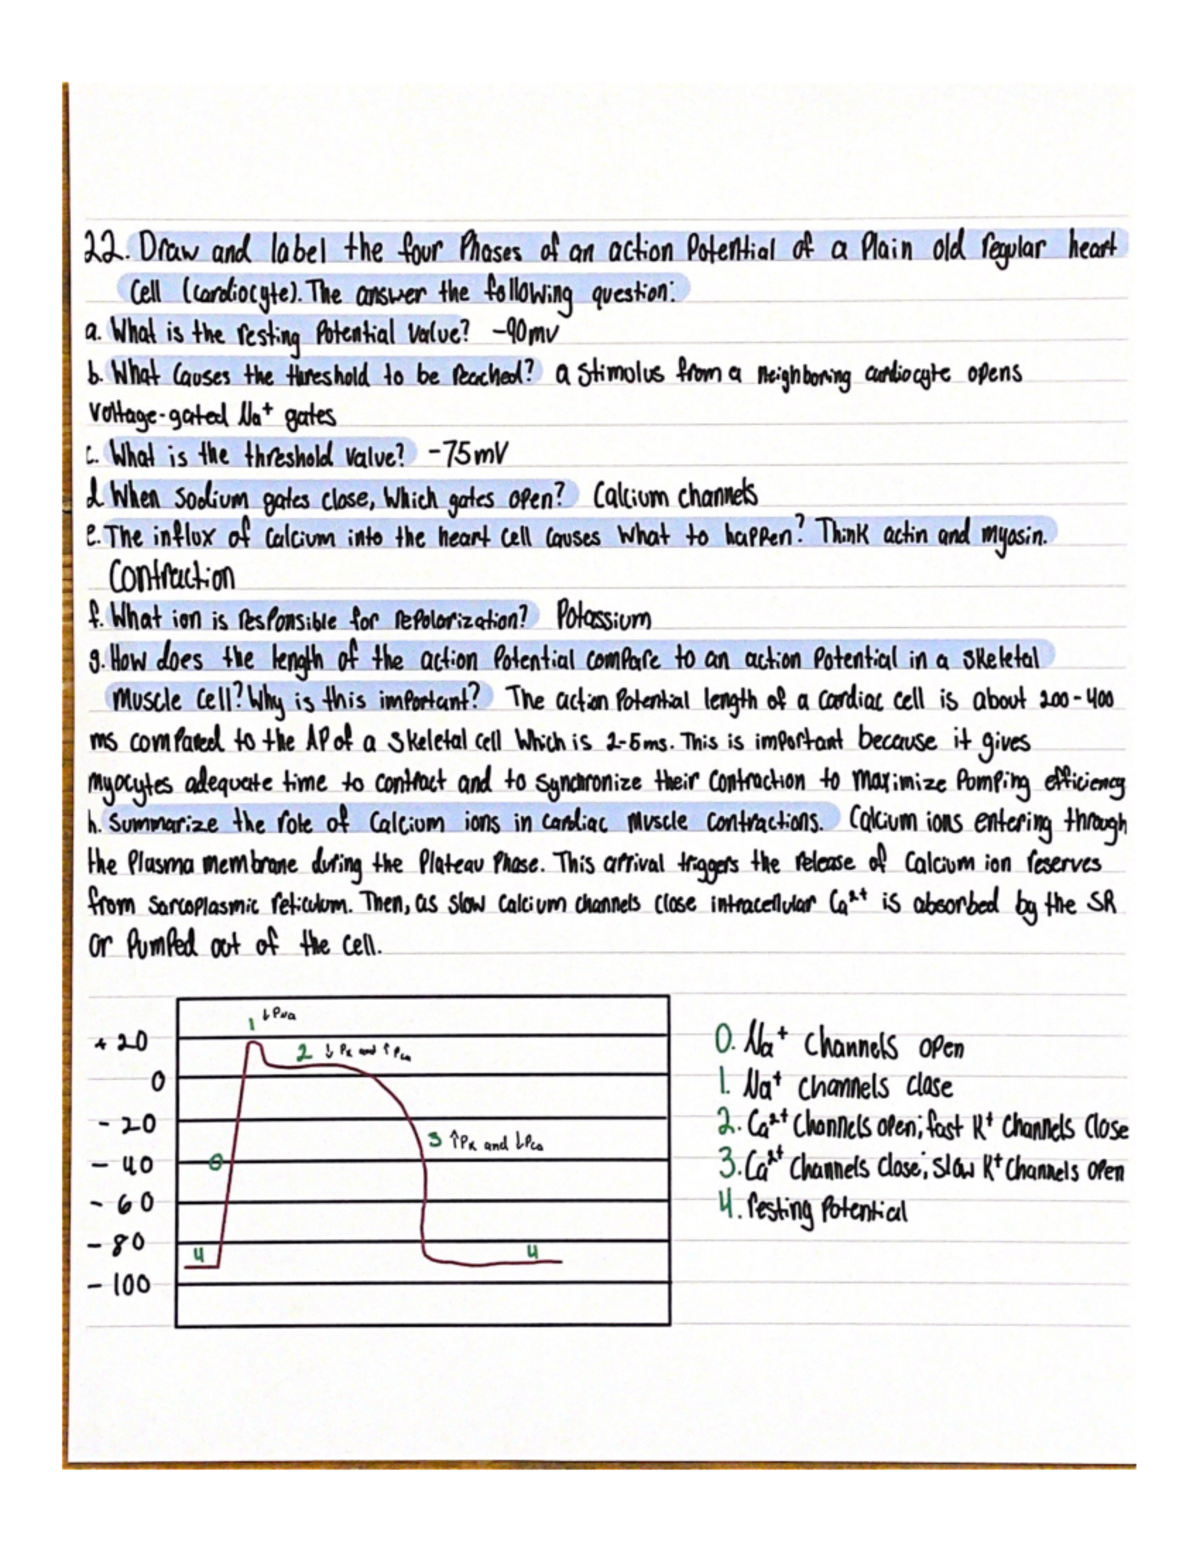 22. Draw and label the four Phases of an action Potential of a Plain old regular heart
Cell (cardiocyte). The answer the following question:
a. What is the resting Potential Value? -90mv
b. What Causes the threshold to be Reached? a stimulus from a neighboring cardiocyte opens
voltage-gated Na+ gates
c. What is the threshold value? -75mV
d. When Sodium gates close, which gates open? Calcium channels
e. The influx of Calcium into the heart cell causes what to happen? Think actin and myosin.
Contraction
f. What ion is responsible for repolarization? Potassium
g. How does the length of the action Potential compare to an action Potential in a skeletal
muscle cell? Why is this important? The action Potential length of a cardiac cell is about 200-400
ms compared to the AP of a skeletal cell which is 2-5ms. This is important because it gives
myocytes adequate time to contract and to synchronize their contraction to maximize Pumping efficiency
h. Summarize the role of Calcium ions in cardiac muscle contractions. Calcium ions entering through
the Plasma membrane during the Plateau Phase. This arrival triggers the release of Calcium ion reserves
from sarcoplasmic reticulum. Then, as slow calcium channels close intracellular Ca2+ is absorbed by the SR
or Pumped out of the cell.
1 ↓PNa
+20
0. Na+ Channels open
2 ↓PK and ↑PCa
0
1. Na+ channels close
-20
2. Ca2+ Channels open; fast K+ Channels Close
3 ↑PK and ↓PCa
-40
0
3. Ca2+ Channels close; slow K+ Channels open
-60
4. Resting Potential
-80
4
4
-100